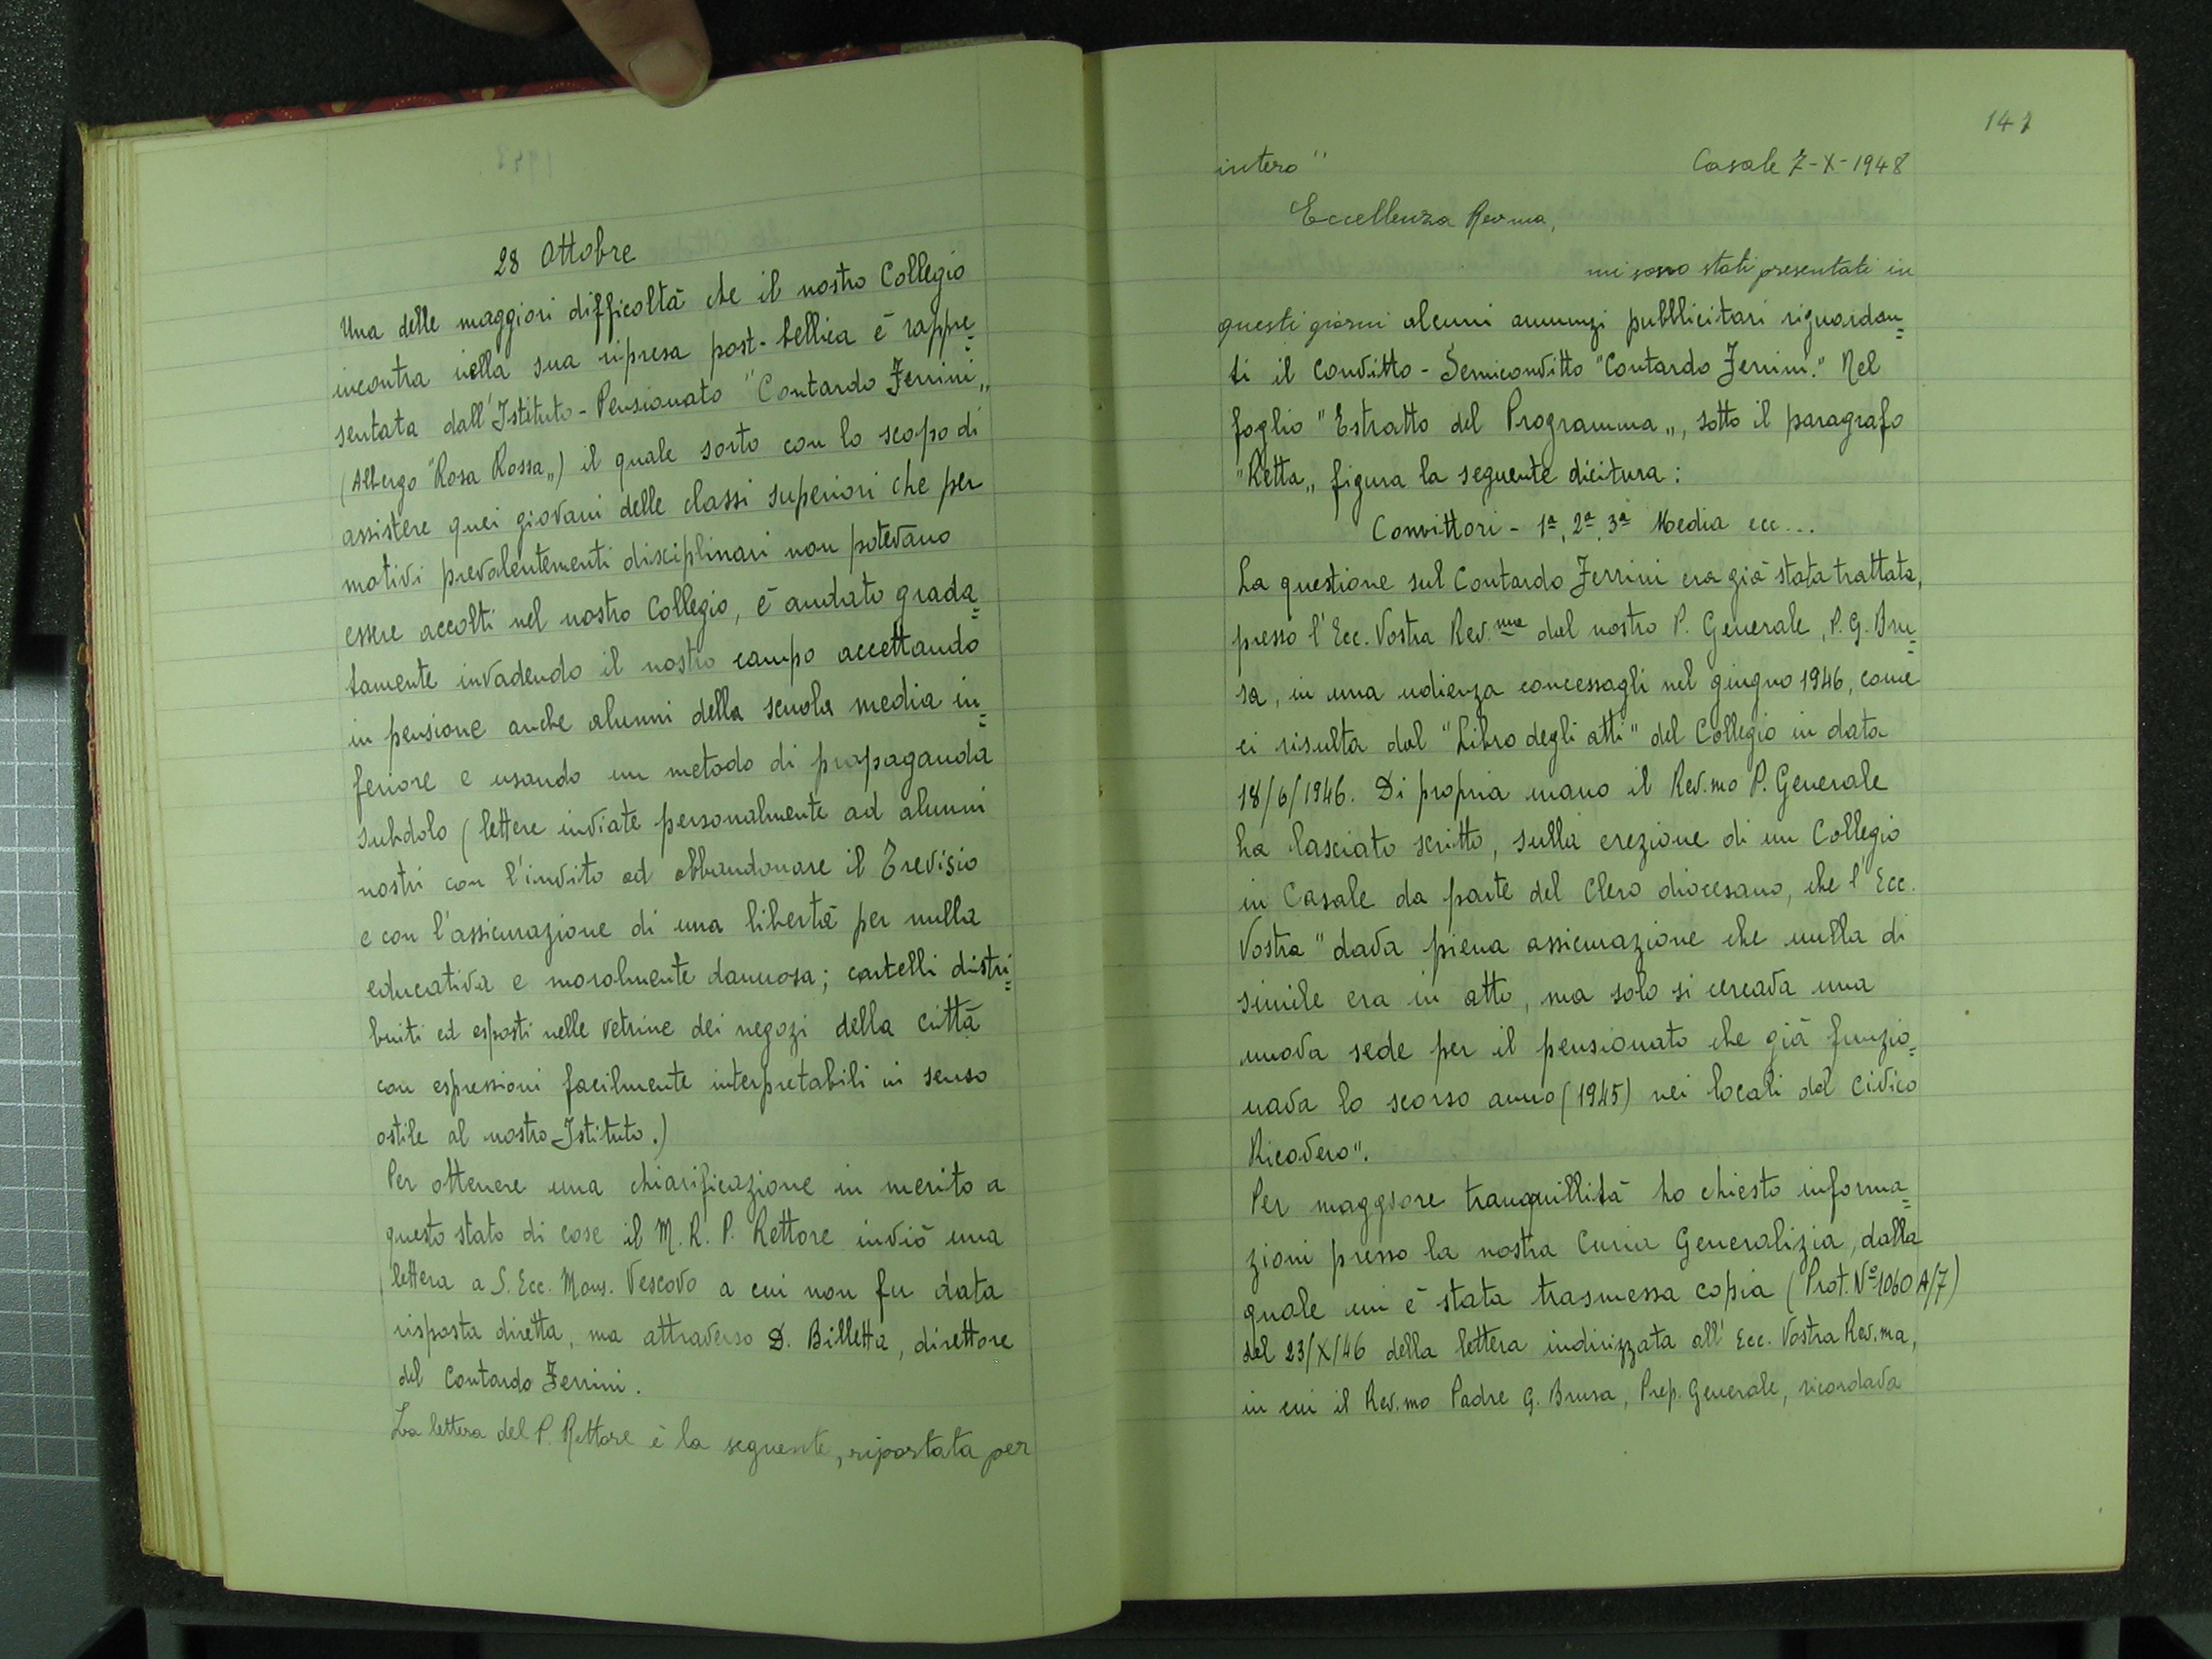 28 Ottobre
Una delle maggiori difficoltà che il nostro Collegio
incontra nella sua ripresa post-bellica è rappre=
sentata dall'Istituto-Pensionato "Contardo Ferrini„
(Albergo "Rosa Rossa„) il quale sorto con lo scopo di
assistere quei giovani delle classi superiori che per
motivi prevalentementi disciplinari non potevano
essere accolti nel nostro Collegio, è andato grada=
tamente invadendo il nostro campo accettando
in pensione anche alunni della scuola media in=
feriore e usando un metodo di propaganda
subdolo (lettere inviate personalmente ad alunni
nostri con l'invito ad abbandonare il Trevisio
e con l'assicurazione di una libertà per nulla
educativa e moralmente dannosa; cartelli distri=
buiti ed esposti nelle vetrine dei negozi della città
con espressioni facilmente interpretabili in senso
ostile al nostro Istituto.)
Per ottenere una chiarificazione in merito a
questo stato di cose il M. R. P. Rettore inviò una
lettera a S. Ecc. Mons. Vescovo a cui non fu data
risposta diretta, ma attraverso D. Billetta, direttore
del Contardo Ferrini.
La lettera del P. Rettore è la seguente, riportata per
141
intero" Casale 7-X-1948
Eccellenza Rev.ma,
mi sono stati presentati in
questi giorni alcuni annunzi pubblicitari riguardan=
ti il Convitto-Semiconvitto "Contardo Ferrini." Nel
foglio "Estratto del Programma„, sotto il paragrafo
"Retta„ figura la seguente dicitura:
Convittori - 1ª, 2ª, 3ª Media ecc...
La questione sul Contardo Ferrini era già stata trattata,
presso l'Ecc. Vostra Rev.ma dal nostro P. Generale, P. G. Bru=
sa, in una udienza concessagli nel giugno 1946, come
ci risulta dal "Libro degli atti" del Collegio in data
18/6/1946. Di propria mano il Rev.mo P. Generale
ha lasciato scritto, sulla erezione di un Collegio
in Casale da parte del Clero diocesano, che l'Ecc.
Vostra "dava piena assicurazione che nulla di
simile era in atto, ma solo si cercava una
nuova sede per il pensionato che già funzio=
nava lo scorso anno (1945) nei locali del Civico
Ricovero".
Per maggiore tranquillità ho chiesto informa=
zioni presso la nostra Curia Generalizia, dalla
quale mi è stata trasmessa copia (Prot. Nº 1060 A/7)
del 23/X/46 della lettera indirizzata all'Ecc. Vostra Rev.ma,
in cui il Rev.mo Padre G. Brusa, Prep. Generale, ricordava